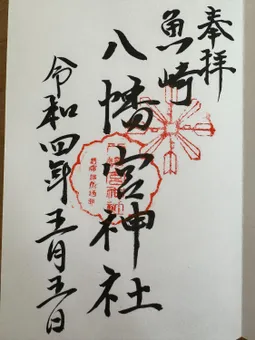 奉拝
魚崎
八幡宮神社
令和四年五月五日